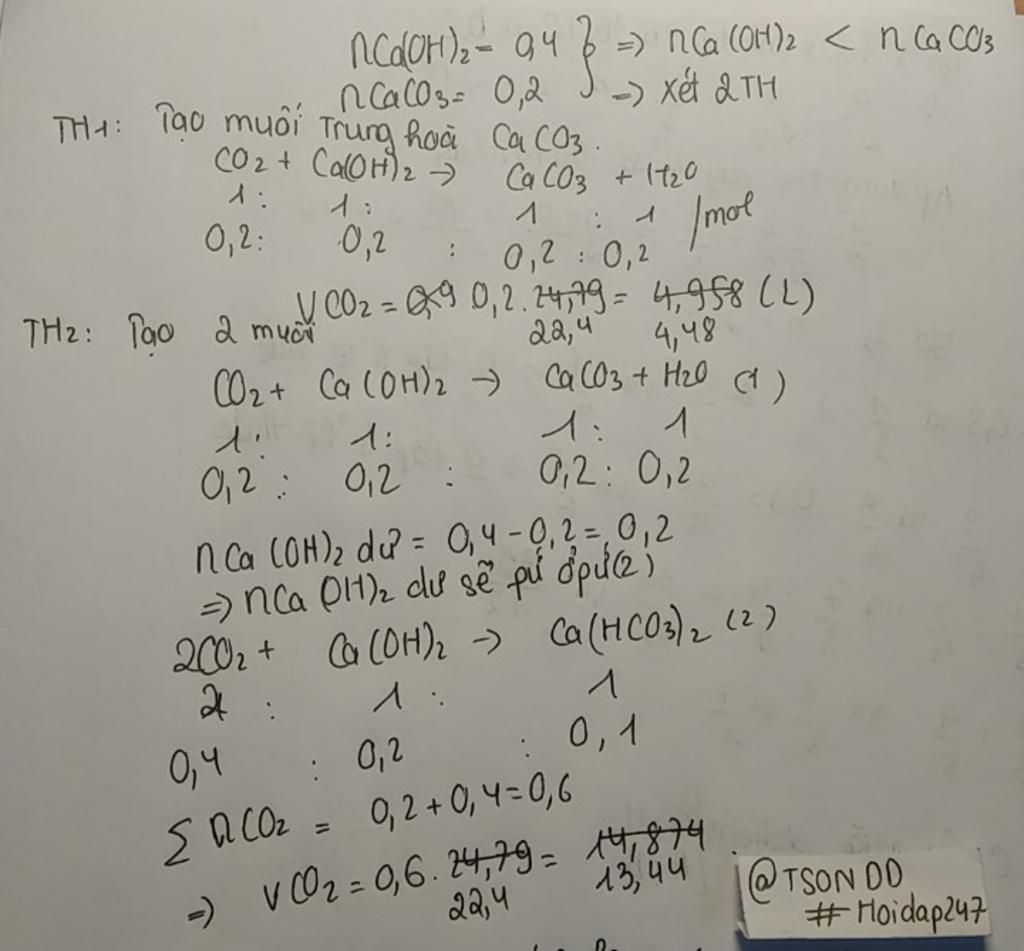 nCa(OH)2 = 0,4 } => nCa(OH)2 < nCaCO3
nCaCO3 = 0,2 => xét 2TH
TH1: Tạo muối Trung hoà CaCO3.
CO2 + Ca(OH)2 → CaCO3 + H2O
1 : 1 : 1 : 1 /mol
0,2 : 0,2 : 0,2 : 0,2
VCO2 = 0,9 0,2 . 24,79 = 4,958 (L)
22,4 4,48
TH2: Tạo 2 muối
CO2 + Ca(OH)2 → CaCO3 + H2O (1)
1 : 1 : 1 : 1
0,2 : 0,2 : 0,2 : 0,2
nCa(OH)2 dư = 0,4 - 0,2 = 0,2
=> nCa(OH)2 dư sẽ pứ ở pứ(2)
2CO2 + Ca(OH)2 → Ca(HCO3)2 (2)
2 : 1 : 1
0,4 : 0,2 : 0,1
∑nCO2 = 0,2 + 0,4 = 0,6
=> VCO2 = 0,6 . 24,79 = 14,874
22,4 13,44
@TSON DD
#Hoidap247